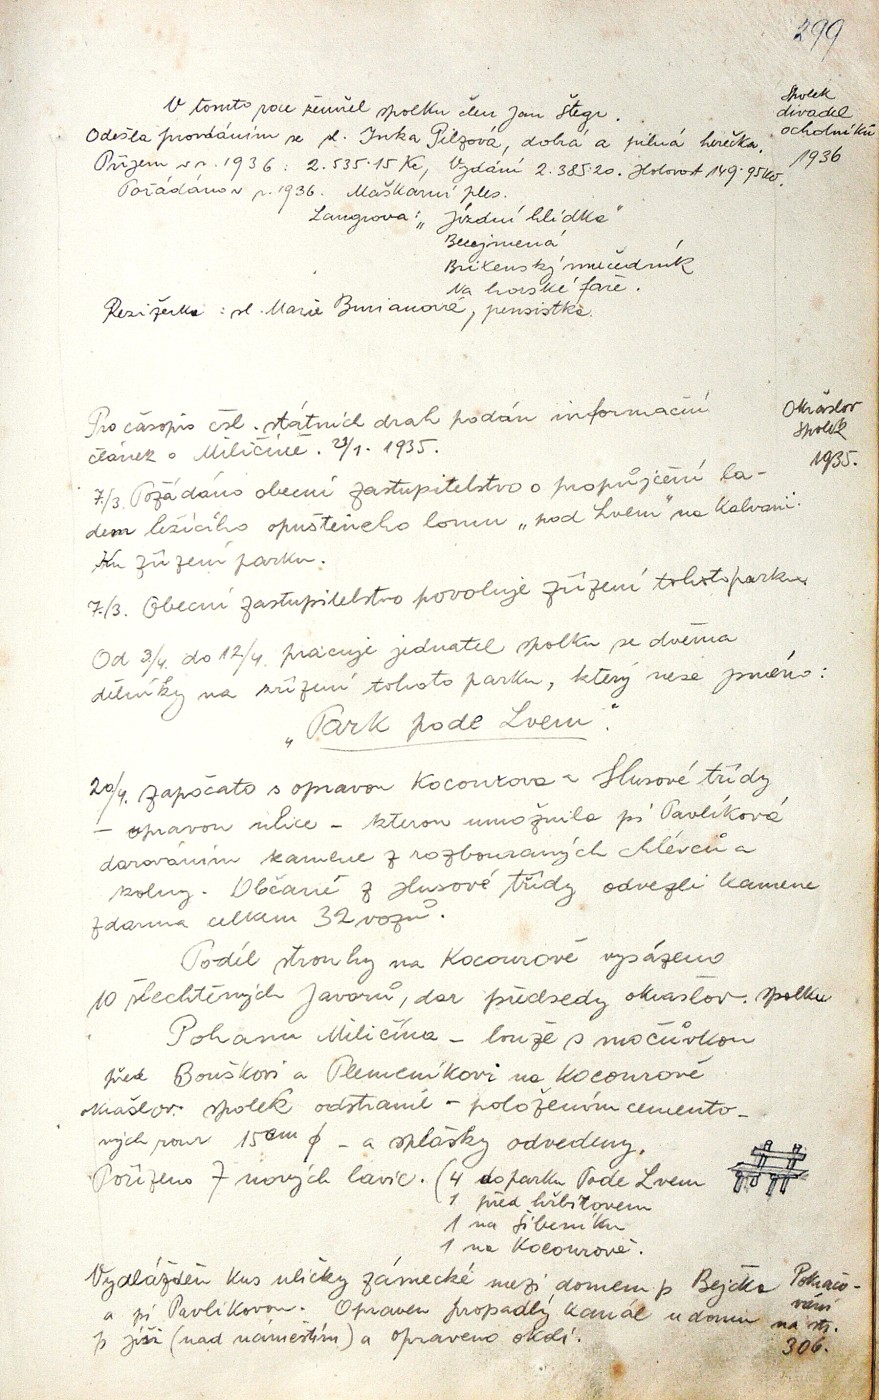 299
Spolek
divadel
ochotníků
1936
V tomto roce zemřel spolku člen Jan Štegr.
Odešla provdáním se sl. Inka Pilzová, dobrá a pilná herečka.
Příjem v r. 1936: 2.535·15 Kč, Vydání 2.385·20. Hotovost 149·95 Kč.
Pořádáno v r. 1936. Maškarní ples.
Langrova: „Jízdní hlídka"
Bezejmená
Brixenský mučedník
Na horské faře.
Režiserka: sl. Marie Burianová, pensistka.
Okrašlov
spolek
1935.
Pro časopis čsl. státních drah podán informační
článek o Miličíně. 23/1. 1935.
7./3. Požádáno obecní zastupitelstvo o propůjčení la-
dem ležícího opuštěného lomu „pod Lvem" na Kalvarii
Ku zřízení parku.
7./3. Obecní zastupitelstvo povoluje zřízení tohoto parku.
Od 3/4. do 12/4. pracuje jednatel spolku se dvěma
dělníky na zřízení tohoto parku, který nese jméno:
„Park pode Lvem".
20/4. započato s opravou Kocourova a Husové třídy
– opravou ulice – kterou umožnila pí Pavlíková
darováním kamene z rozbouraných chlévců a
kolny. Občané z Husové třídy odvezli kamene
zdarma celkem 32 vozů.
Podíl strouhy na Kocourově vysázeno
10 šlechtěných Javorů, dar předsedy okrašlov. spolku
Pohanu Miličína – louže s močůvkou
před Bouškovi a Plemeníkovi na Kocourově
okrašlov. spolek odstranil – položením cemento-
vých rour 15 cm ϕ – a splašky odvedeny.
Pořízeno 7 nových lavic. (4 do parku Pode Lvem
1 před hřbitovem
1 na Šibeníku
1 na Kocourově.
Vydlážděn kus uličky zámecké mezi domem p Bejčka
a pí Pavlíkovou. Opraven propadlý kanál u domu
p Jiší (nad náměstím) a opraveno okolí.
Pokračo-
vání
na str.
306.